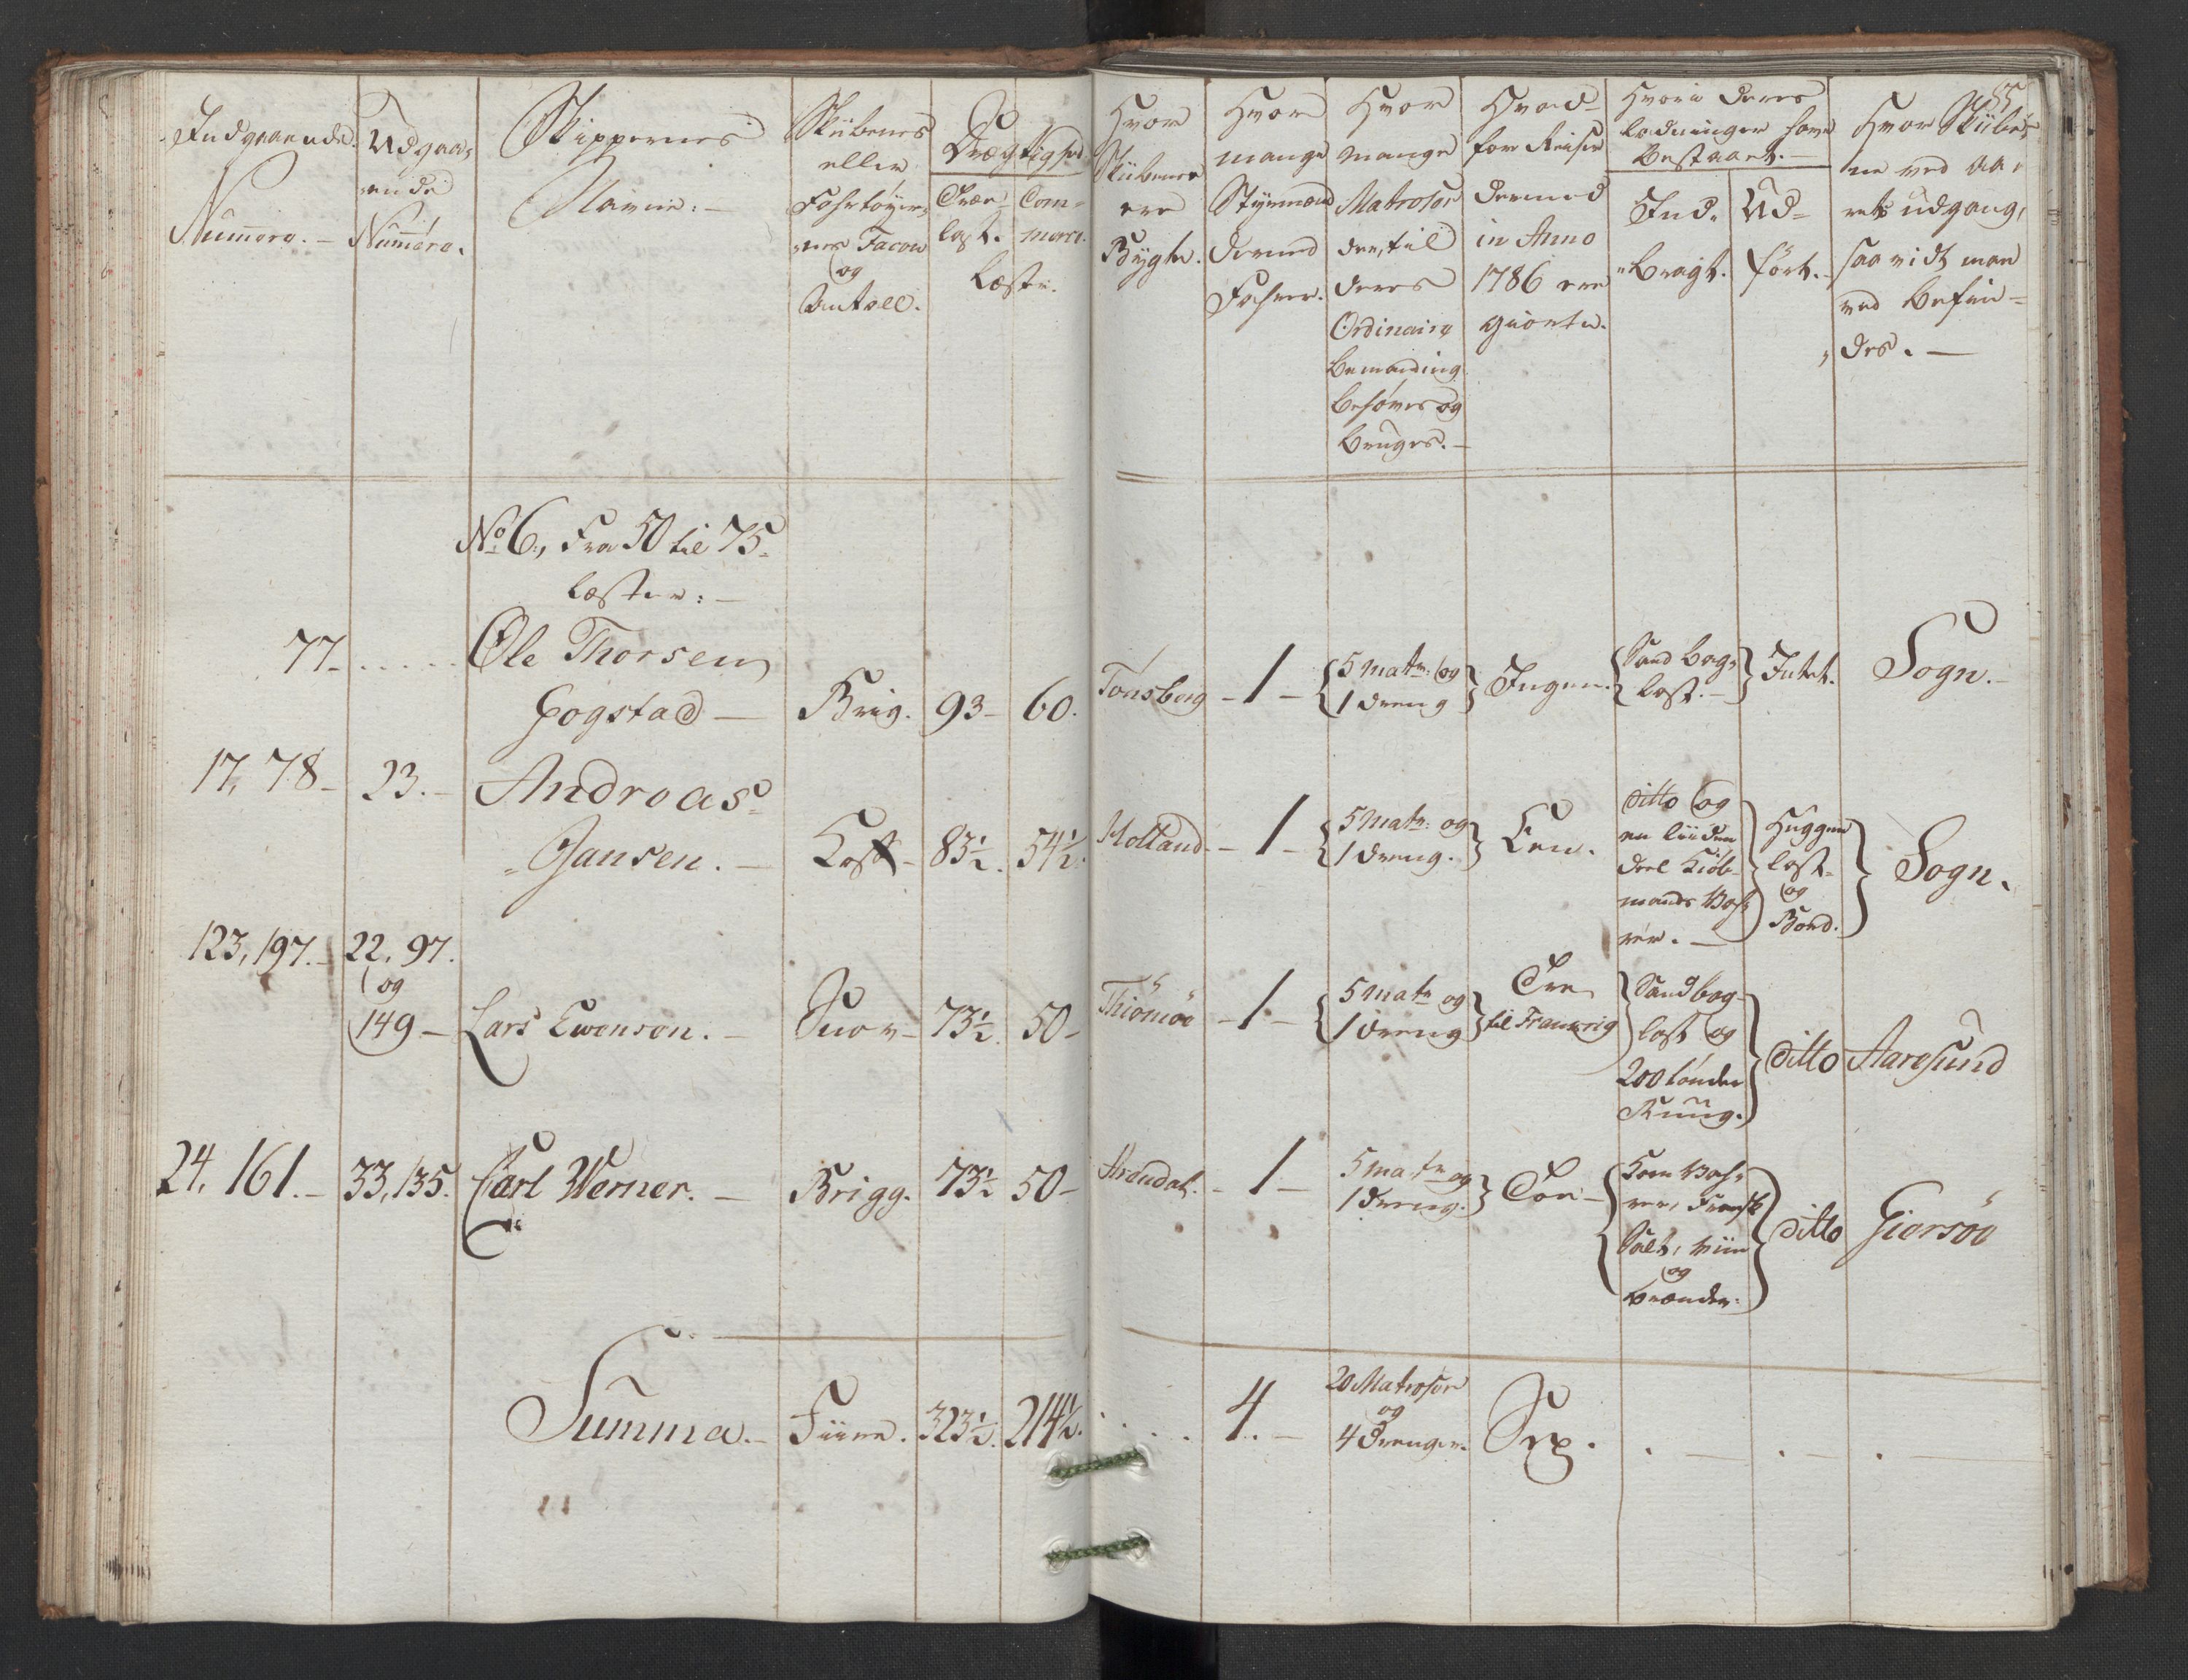 Indgaaende
Numero. –
Udgaa,
ende
Numero.
Skippernes
Navne: –
Skibenes
eller
Fahrtøyer,
nes Facon
og
Antall.
Drægtighed
Træe
last.
Com-
merce
Læster.
Hvor
Skibene
ere
Bygte.
Hvor
mange
Styrmænd
dermed
Farer.
Hvor
mange
Matroser
der, til
deres
Ordinaire
Bemanding
behøves og
bruges. –
Hvad
for Reiser
dermed
in Anno
1786 ere
giorte.
Hvori deres
ladninger have
bestaaet. –
Ind,
bragt.
Ud-
ført. –
85
Hvor Skibe,
ne ved Aa,
rets udgang,
saavidt man
ved befin-
des. –
No 6, Fra 50 til 75
Læster: –
77 – . . . . . Ole Thorsen
Gogstad – Brig. 93 – 60. Tønsberg – 1 – 5 matr: og
1 dreng Ingen. Sand bag,
last. – Intet. Sogn. –
17, 78 – 23. – Andreas
Jansen. – Koff – 83½. 54½. Holland – 1 – 5 Matr: og
1 dreng. Een. ditto og
en liiden
deel Kiøb-
mands Vah,
rer. – Huggen
last
og
Bord. Sogn.
123, 197. – 22, 97.
og
149 – Lars Evensen. – Snov – 73½. 50 – Thiømøe – 1 – 5 matr og
1 dreng Tre
til Frankrig Sandbag
last og
200 tønder
Ruug. ditto Aaresund
24, 161. – 33, 135. Carl Werner. – Brigg. 73½ 50 – Arendal. – 1 – 5 matr og
1 dreng. Toe – Kom Vah,
rer, Fransk
Salt, Viin
og
brænder: ditto Giersøe
Summa. – Fiire. 323½. 214½. . . . . 4. – 20 Matroser
og
4 drenger. Sex. . – . – . –